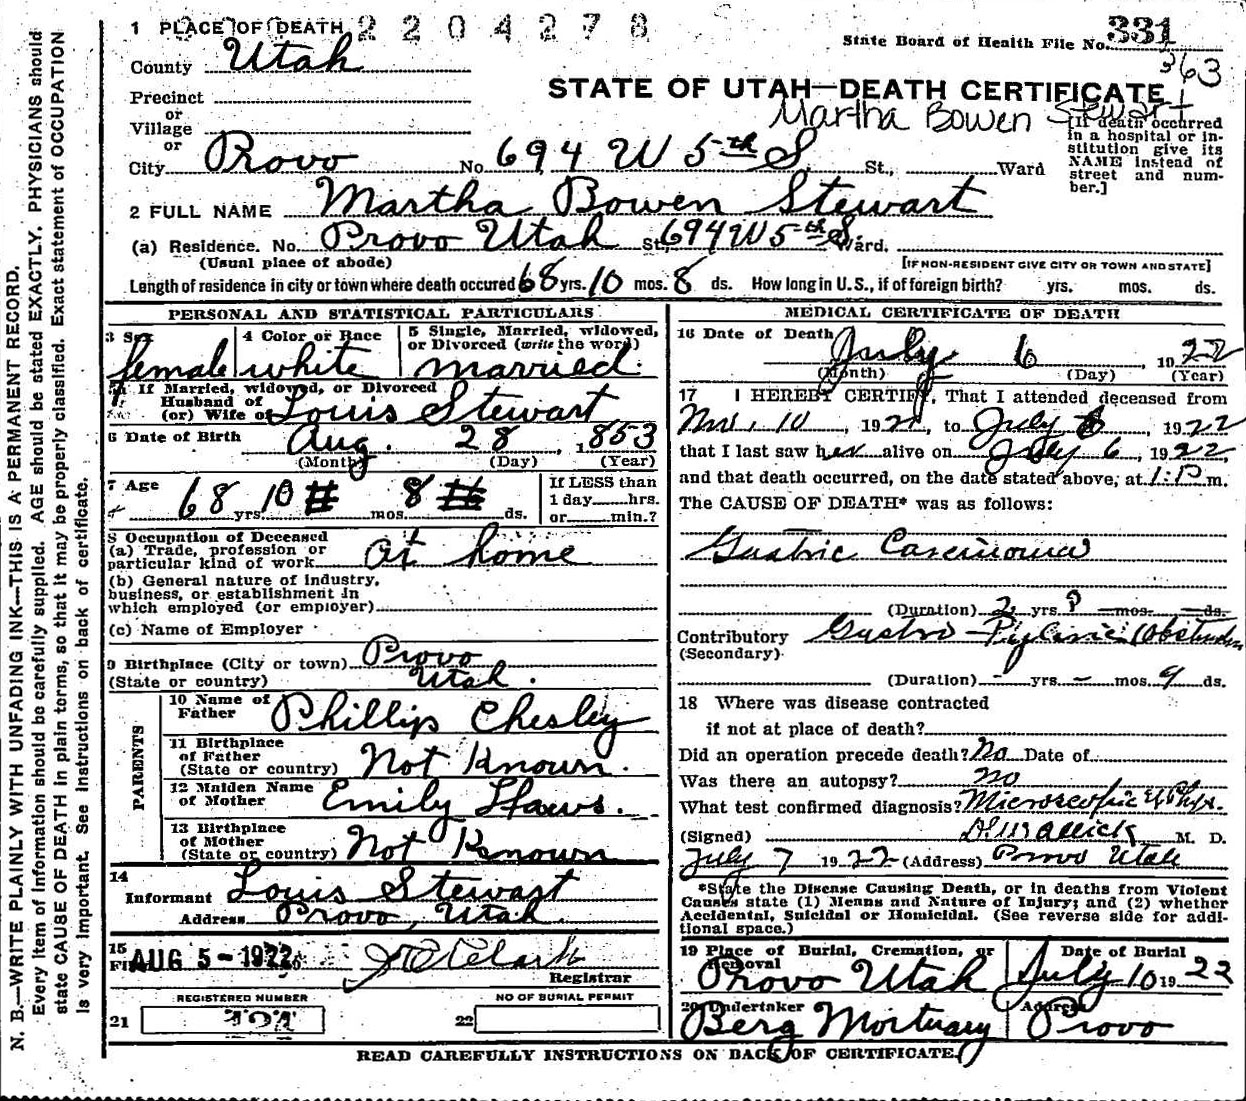 1 PLACE OF DEATH 2204278
State Board of Health File No. 331
363
County Utah
STATE OF UTAH—DEATH CERTIFICATE
Martha Bowen Stewart
Precinct
or
Village
or
City Provo No 694 W 5th S. St., Ward
[If death occurred
in a hospital or in-
stitution give its
NAME instead of
street and num-
ber.]
2 FULL NAME Martha Bowen Stewart
(a) Residence. No. Provo Utah St. 694 W 5th S. Ward.
(Usual place of abode) [IF NON-RESIDENT GIVE CITY OR TOWN AND STATE]
Length of residence in city or town where death occured 68 yrs. 10 mos. 8 ds. How long in U.S., if of foreign birth? yrs. mos. ds.
PERSONAL AND STATISTICAL PARTICULARS
3 Sex 4 Color or Race 5 Single, Married, widowed,
or Divorced (write the word)
female white married.
If Married, widowed, or Divorced
Husband of
(or) Wife of Louis Stewart
6 Date of Birth Aug. 28, 1853
(Month) (Day) (Year)
7 Age 68 yrs. 10 mos. 8 ds.
If LESS than
1 day hrs.
or min.?
8 Occupation of Deceased
(a) Trade, profession or
particular kind of work At home
(b) General nature of industry,
business, or establishment in
which employed (or employer)
(c) Name of Employer
9 Birthplace (City or town) Provo
(State or country) Utah.
PARENTS
10 Name of
Father Phillip Chesley
11 Birthplace
of Father
(State or country) Not Known.
12 Maiden Name
of Mother Emily Haws.
13 Birthplace
of Mother
(State or country) Not Known
14
Informant Louis Stewart
Address Provo, Utah.
15
AUG 5 - 1922
Clark
Registrar
REGISTERED NUMBER NO OF BURIAL PERMIT
21 22
MEDICAL CERTIFICATE OF DEATH
16 Date of Death July 6 1922
(Month) (Day) (Year)
17 I HEREBY CERTIFY, That I attended deceased from
Nov. 10, 192, to July 6 1922
that I last saw her alive on July 6, 1922,
and that death occurred, on the date stated above, at 1:P m.
The CAUSE OF DEATH* was as follows:
Gastric Carcinoma
(Duration) 2 yrs ? mos. ds.
Contributory Gastro-Pyloric Obstruction
(Secondary)
(Duration) - yrs. - mos. 9 ds.
18 Where was disease contracted
if not at place of death?
Did an operation precede death? No Date of
Was there an autopsy? no
What test confirmed diagnosis? Microscopic & Phys.
(Signed) M. D.
July 7 1922 (Address) Provo Utah
*State the Disease Causing Death, or in deaths from Violent
Causes state (1) Means and Nature of Injury; and (2) whether
Accidental, Suicidal or Homicidal. (See reverse side for addi-
tional space.)
19 Place of Burial, Cremation, or
Removal Date of Burial
Provo Utah July 10 1922
20 Undertaker Address
Berg Mortuary Provo
READ CAREFULLY INSTRUCTIONS ON BACK OF CERTIFICATE.
N. B.—WRITE PLAINLY WITH UNFADING INK—THIS IS A PERMANENT RECORD.
Every item of information should be carefully supplied. AGE should be stated EXACTLY. PHYSICIANS should
state CAUSE OF DEATH in plain terms, so that it may be properly classified. Exact statement of OCCUPATION
is very important. See instructions on back of certificate.